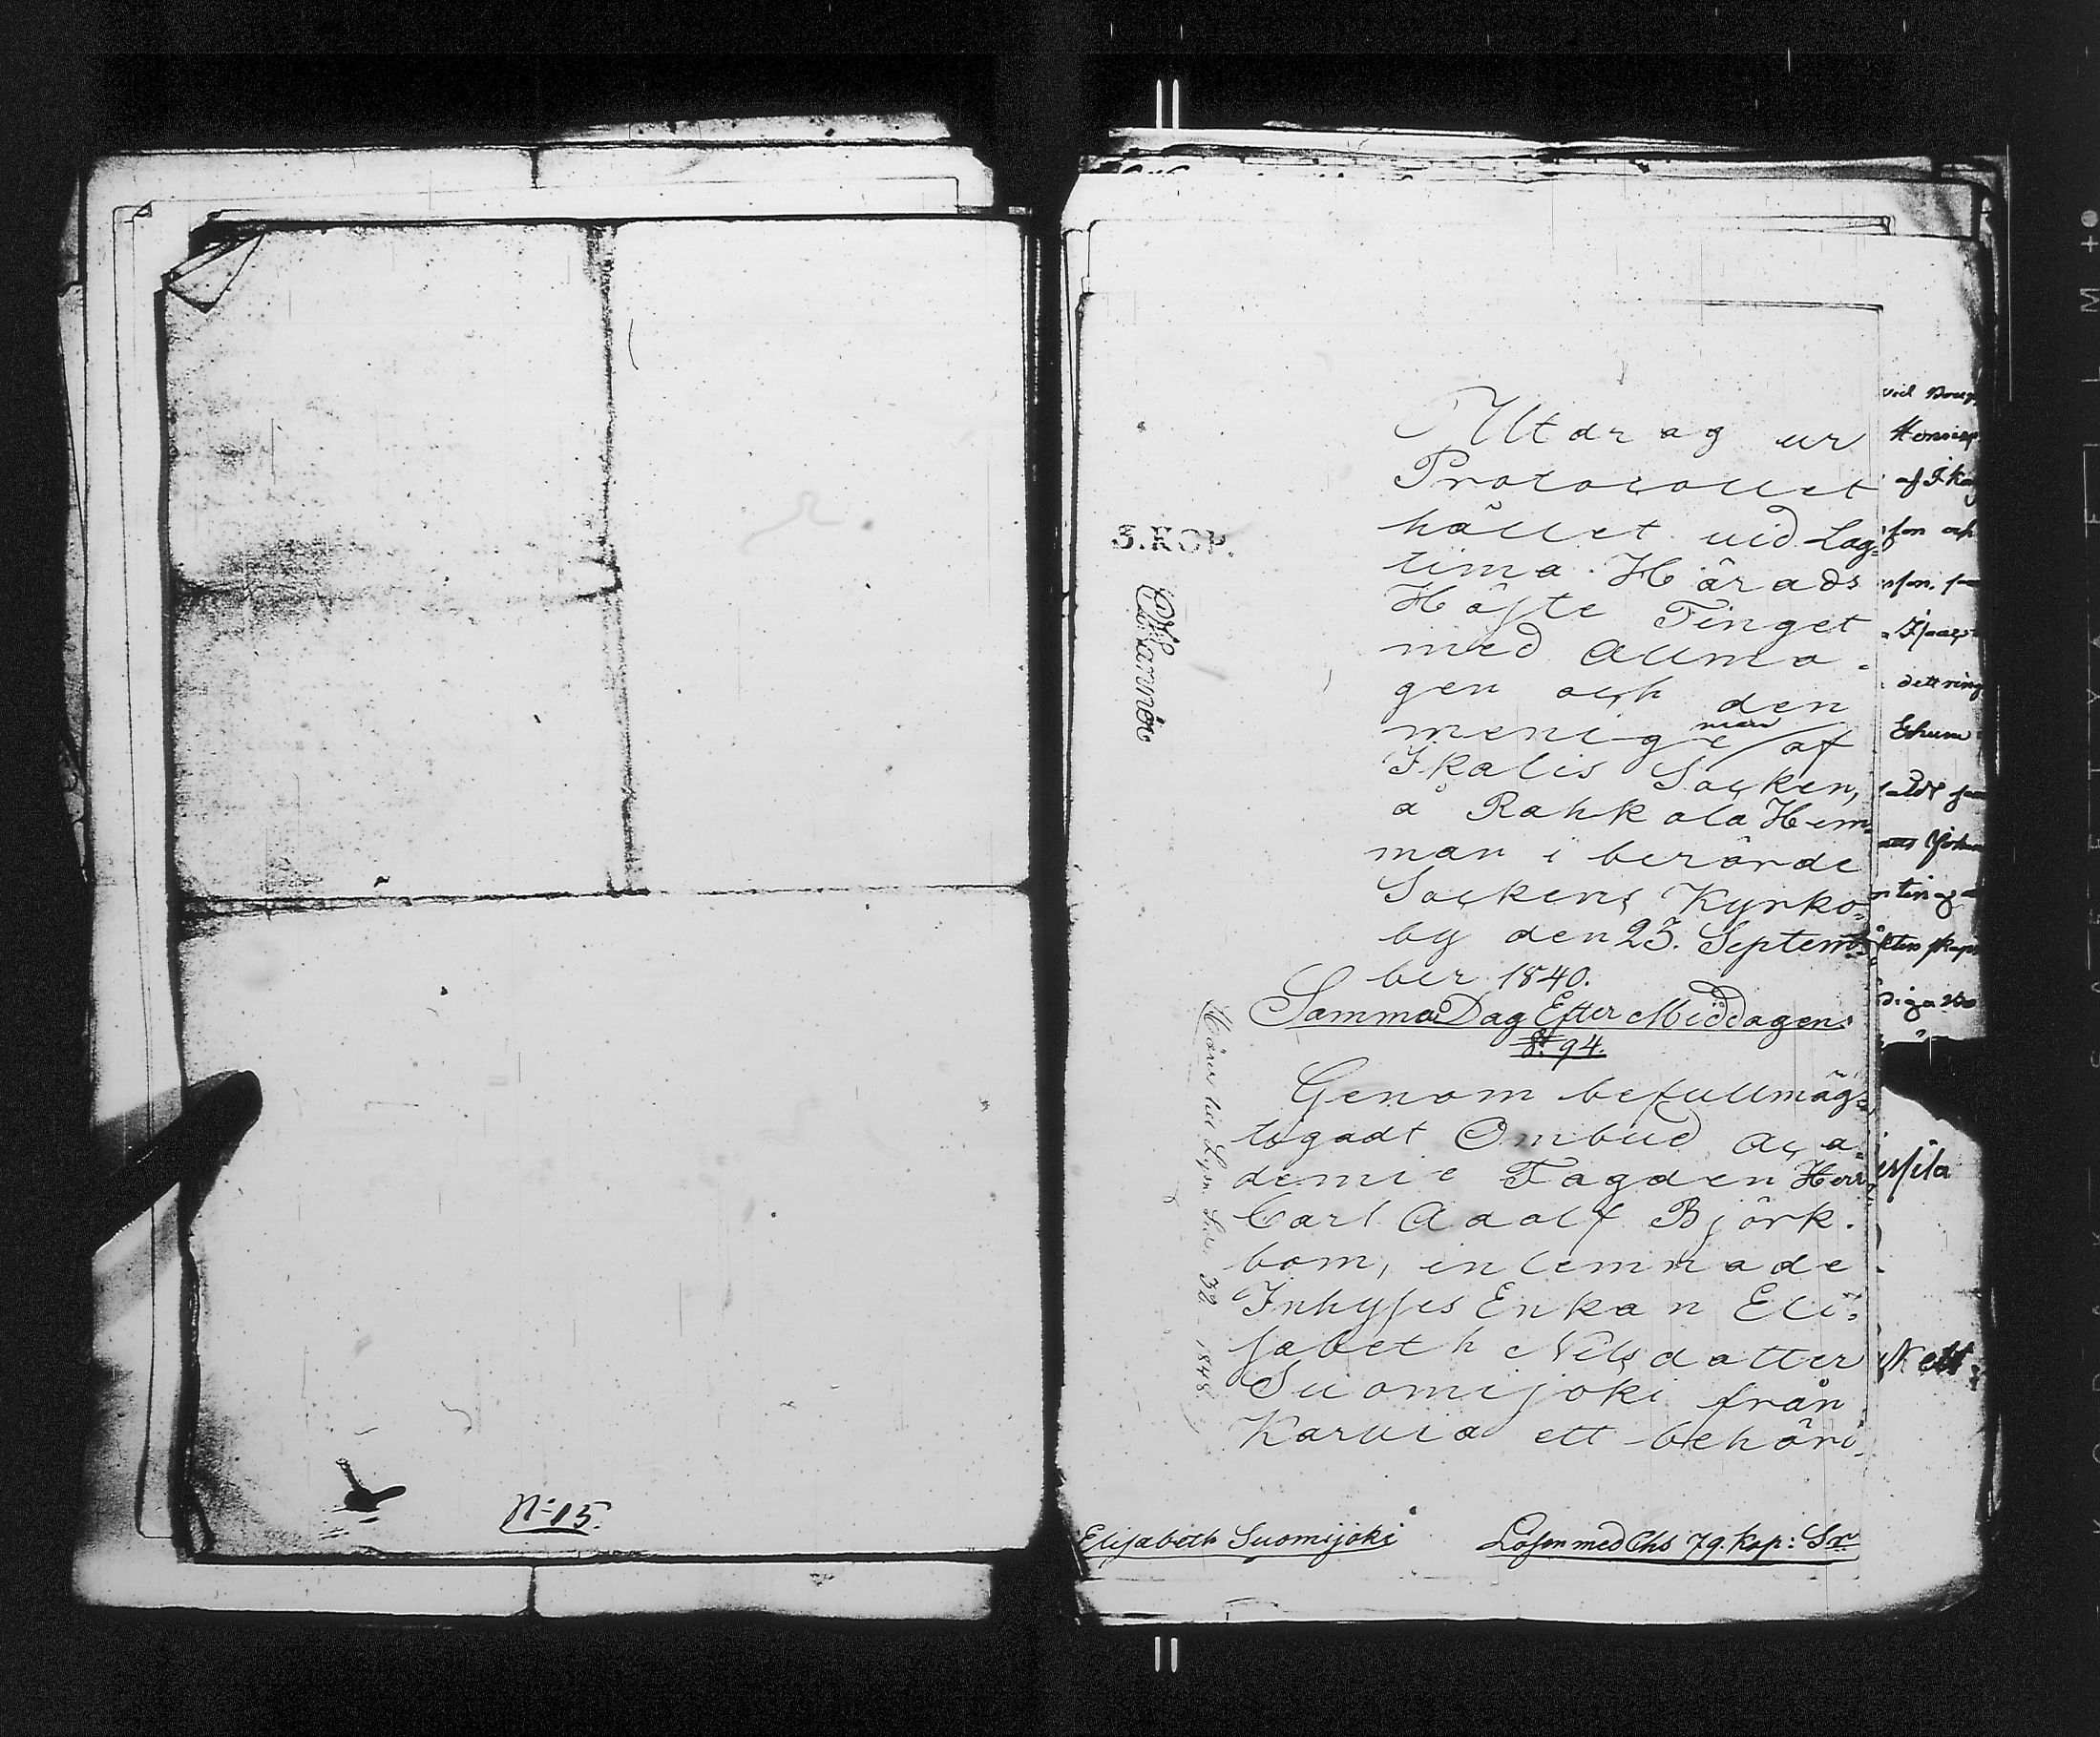 N:o 15.
Utdrag ur
Protocollet
hållet vid Lag=
tima Härads
Höste Tinget
med Allmo=
gen och den
menige man af
Ikalis Socken,
å Rahkola Hem=
man i berörde
Sockens Kyrko=
by den 25. Septem=
ber 1840.
Samma Dag Efter Middagen:
§. 94.
Genom befullmäg=
tigadt Ombud Aca=
demie Fogden Herr
Carl Adolf Björk=
bom, inlemnade
Inhyses Enkan Eli=
sabeth Nilsdotter
Suomijoki från
Karvia ett behöri=
Elisabeth Suomijoki
Lösen med Chs 79. Kop: Sr
3. KOP.
32
1848
af Ika
son och
Nett